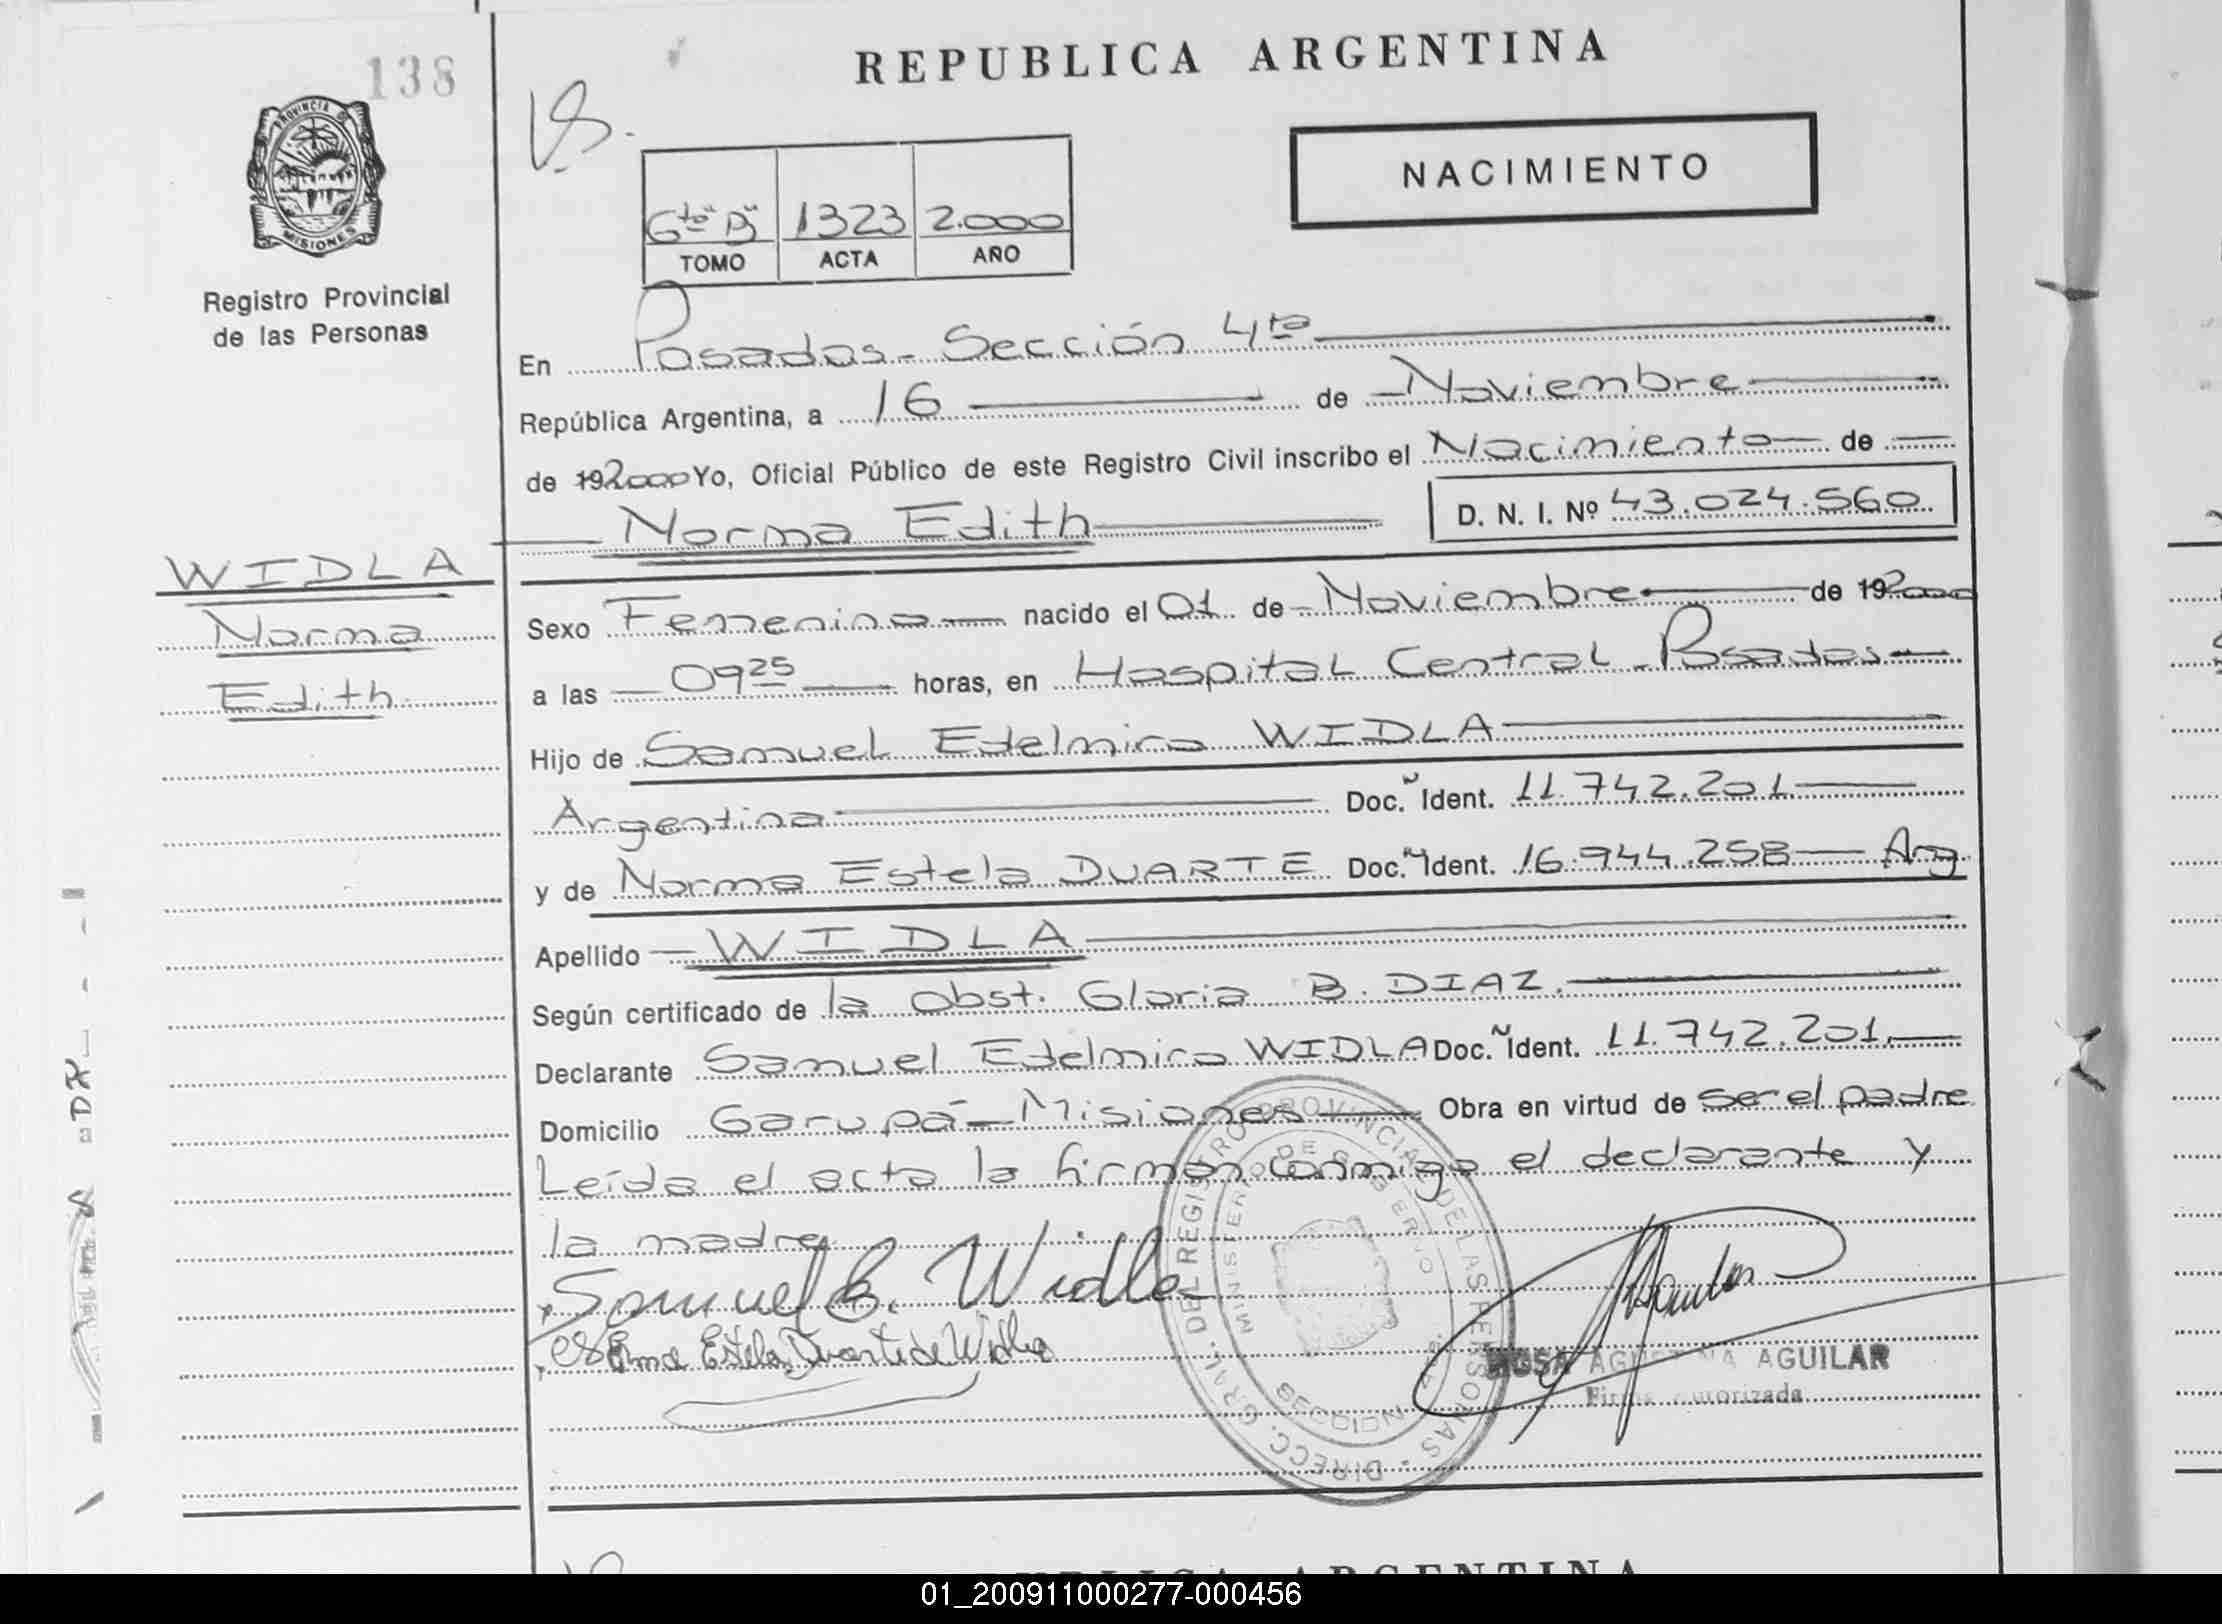 138
REPUBLICA ARGENTINA
PROVINCIA DE
MISIONES
Registro Provincial
de las Personas
NACIMIENTO
6to "B" 1323 2.000
TOMO ACTA AÑO
En Posadas - Sección 4ta
República Argentina, a 16 de Noviembre
de 192000 Yo, Oficial Público de este Registro Civil inscribo el Nacimiento de
Norma Edith D. N. I. Nº 43.024.560
WIDLA
Norma
Edith
Sexo Femenino nacido el 01 de Noviembre de 192000
a las 09 25 horas, en Hospital Central - Posadas
Hijo de Samuel Edelmiro WIDLA
Argentina Doc. Ident. 11.742.201
y de Norma Estela DUARTE Doc. Ident. 16.944.258 Arg.
Apellido WIDLA
Según certificado de la obst. Gloria B. DIAZ.
Declarante Samuel Edelmiro WIDLA Doc. Ident. 11.742.201.
Domicilio Garupá - Misiones Obra en virtud de ser el padre
Leída el acta la firman conmigo el declarante y
la madre
Samuel E. Widla
Norma Estela Duarte de Widla
DIRECC. GRAL. DEL REGISTRO PROVINCIAL DE LAS PERSONAS
MINISTERIO DE GOBIERNO
SECCION
ROSA AGUSTINA AGUILAR
Firma Autorizada
REPUBLICA ARGENTINA
01_200911000277-000456